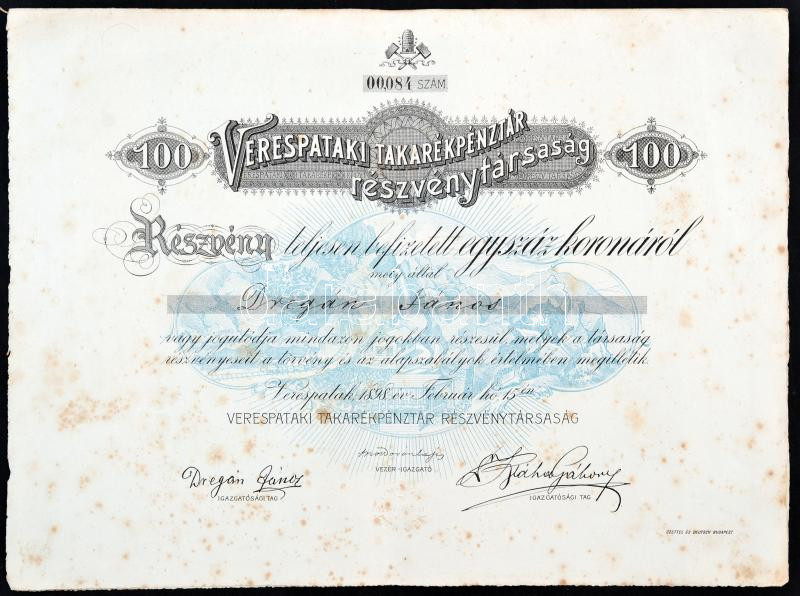 00,084 SZÁM
100 VERESPATAKI TAKARÉKPÉNZTÁR 100
részvénytársaság
Részvény teljesen befizetett egyszáz koronáról
mely által
Dregán János
vagy jogutódja mindazon jogokban részesül, melyek a társaság
részvényeseit a törvény és az alapszabályok értelmében megilletik.
Verespatak, 1898. év Február hó 15-én
VERESPATAKI TAKARÉKPÉNZTÁR RÉSZVÉNYTÁRSASÁG
VEZÉR-IGAZGATÓ
Dregán János
IGAZGATÓSÁGI TAG
Gábor
IGAZGATÓSÁGI TAG
CZETTEL ÉS DEUTSCH BUDAPEST